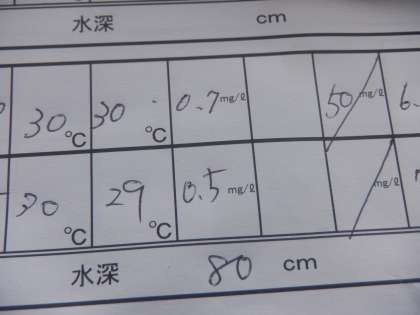 水深 cm
30 ℃ 30 ℃ 0.7 mg/ℓ 50 mg/ℓ 6.
30 ℃ 29 ℃ 0.5 mg/ℓ mg/ℓ
水深 80 cm